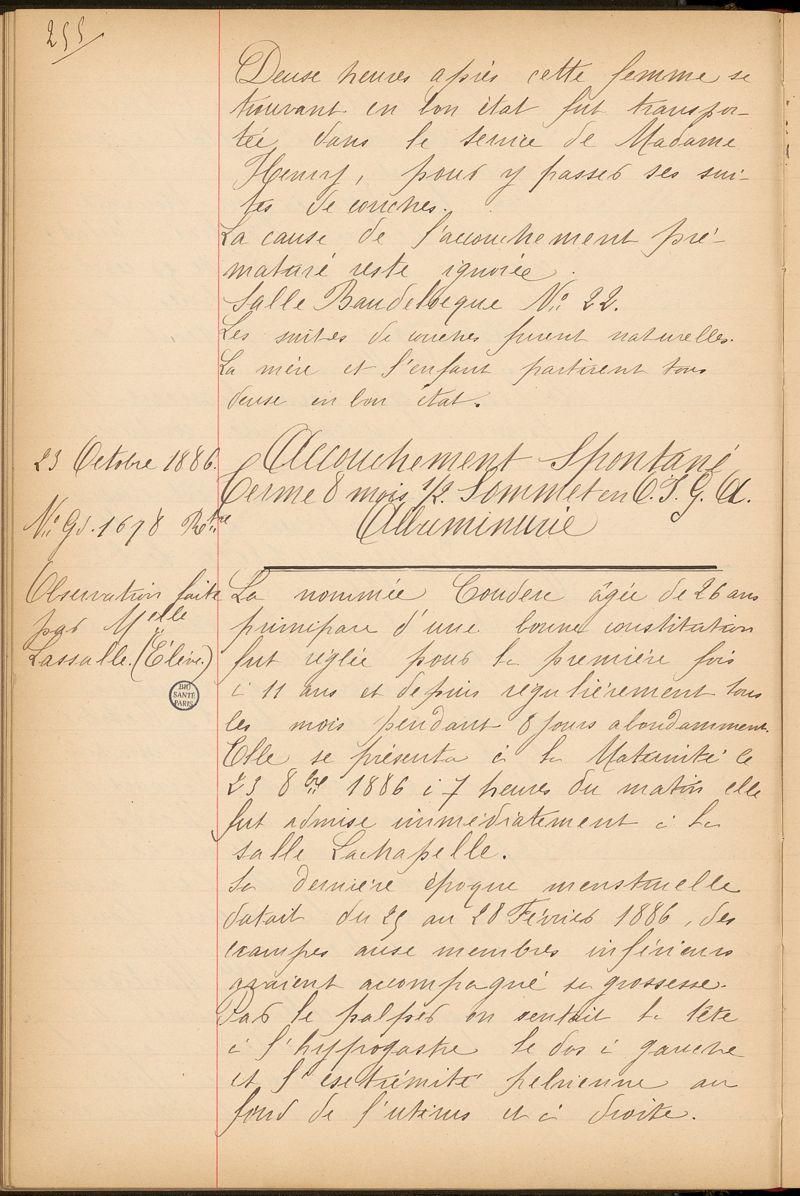 255
Deux heures après cette femme se
trouvant en bon état fut transpor-
tée dans le service de Madame
Henry, pour y passer ses sui-
tes de couches.
La cause de l'accouchement pré-
maturé reste ignorée.
Salle Baudelocque N° 22.
Les suites de couches furent naturelles.
La mère et l'enfant partirent tous
deux en bon état.
23 Octobre 1886.
N° Gd. 1678 Rtre
Observation faite
par Melle
Lassalle. (Elève.)
BIU
SANTÉ
PARIS
Accouchement Spontané
Terme 8 mois 1/2. Sommet en O.I.G.A.
Albuminurie
La nommée Couderc âgée de 26 ans
primipare d'une bonne constitution
fut réglée pour la première fois
à 11 ans et depuis régulièrement tous
les mois pendant 8 jours abondamment.
Elle se présenta à la Maternité le
23 8bre 1886 à 7 heures du matin elle
fut admise immédiatement à la
salle Lachapelle.
Sa dernière époque menstruelle
datait du 25 au 28 Février 1886, des
crampes aux membres inférieurs
avaient accompagné sa grossesse.
Par le palper on sentait la tête
à l'hypogastre le dos à gauche
et l'extrémité pelvienne au
fond de l'utérus et à droite.